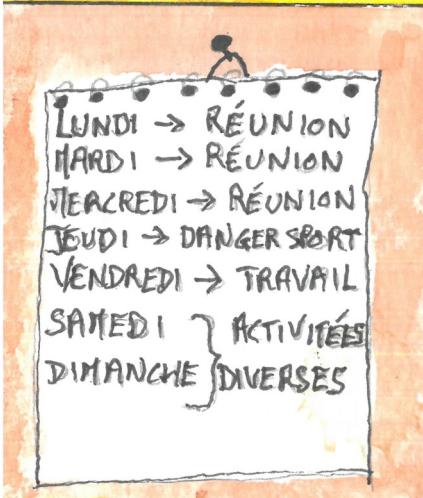 LUNDI → RÉUNION
MARDI → RÉUNION
MERCREDI → RÉUNION
JEUDI → DANGER SPORT
VENDREDI → TRAVAIL
SAMEDI } ACTIVITÉES
DIMANCHE } DIVERSES